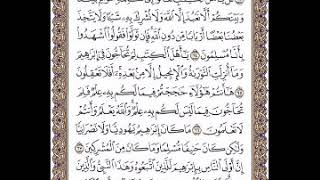 وَبَيْنَكُمْ أَلَّا نَعْبُدَ إِلَّا ٱللَّهَ وَلَا نُشْرِكَ بِهِۦ شَيْـًٔا وَلَا يَتَّخِذَ
بَعْضُنَا بَعْضًا أَرْبَابًا مِّن دُونِ ٱللَّهِ ۚ فَإِن تَوَلَّوْا۟ فَقُولُوا۟ ٱشْهَدُوا۟
بِأَنَّا مُسْلِمُونَ ٦٤ يَـٰٓأَهْلَ ٱلْكِتَـٰبِ لِمَ تُحَآجُّونَ فِىٓ إِبْرَٰهِيمَ
وَمَآ أُنزِلَتِ ٱلتَّوْرَىٰةُ وَٱلْإِنجِيلُ إِلَّا مِنۢ بَعْدِهِۦٓ ۚ أَفَلَا تَعْقِلُونَ
٦٥ هَـٰٓأَنتُمْ هَـٰٓؤُلَآءِ حَـٰجَجْتُمْ فِيمَا لَكُم بِهِۦ عِلْمٌ فَلِمَ
تُحَآجُّونَ فِيمَا لَيْسَ لَكُم بِهِۦ عِلْمٌ ۚ وَٱللَّهُ يَعْلَمُ وَأَنتُمْ
لَا تَعْلَمُونَ ٦٦ مَا كَانَ إِبْرَٰهِيمُ يَهُودِيًّا وَلَا نَصْرَانِيًّا
وَلَـٰكِن كَانَ حَنِيفًا مُّسْلِمًا وَمَا كَانَ مِنَ ٱلْمُشْرِكِينَ ٦٧
إِنَّ أَوْلَى ٱلنَّاسِ بِإِبْرَٰهِيمَ لَلَّذِينَ ٱتَّبَعُوهُ وَهَـٰذَا ٱلنَّبِىُّ وَٱلَّذِينَ